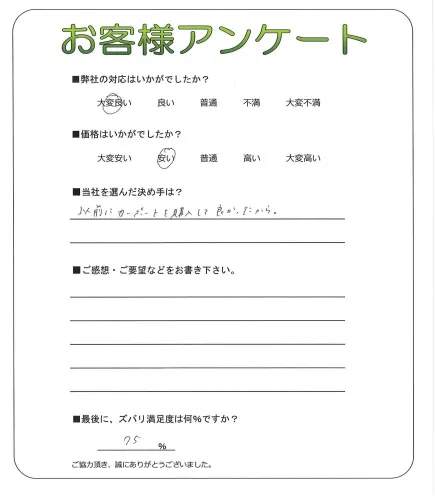 お客様アンケート
■弊社の対応はいかがでしたか？
大変良い 良い 普通 不満 大変不満
■価格はいかがでしたか？
大変安い 安い 普通 高い 大変高い
■当社を選んだ決め手は？
以前にカーポートを購入して良かったから。
■ご感想・ご要望などをお書き下さい。
■最後に、ズバリ満足度は何%ですか？
75 %
ご協力頂き、誠にありがとうございました。